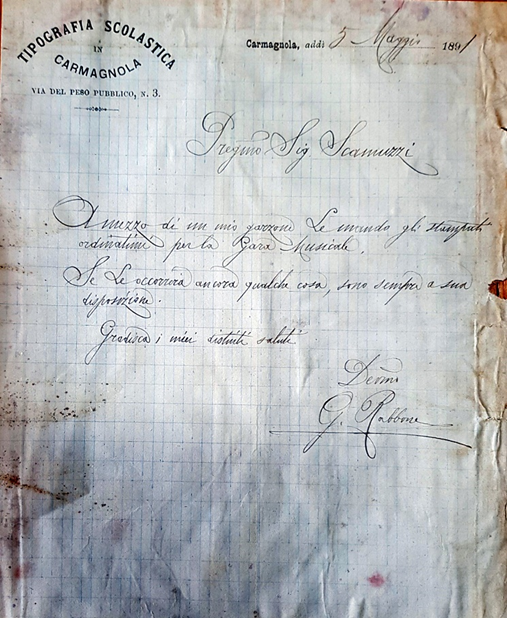 TIPOGRAFIA SCOLASTICA
IN
CARMAGNOLA
VIA DEL PESO PUBBLICO, N. 3.
Carmagnola, addì 5 Maggio 1891
Pregmo Sig. Scamuzzi
A mezzo di un mio garzone Le mando gli stampati
ordinatimi per la Gara Musicale.
Se Le occorrerà ancora qualche cosa, sono sempre a sua
disposizione.
Gradisca i miei distinti saluti
Devmo
G. Rabbone